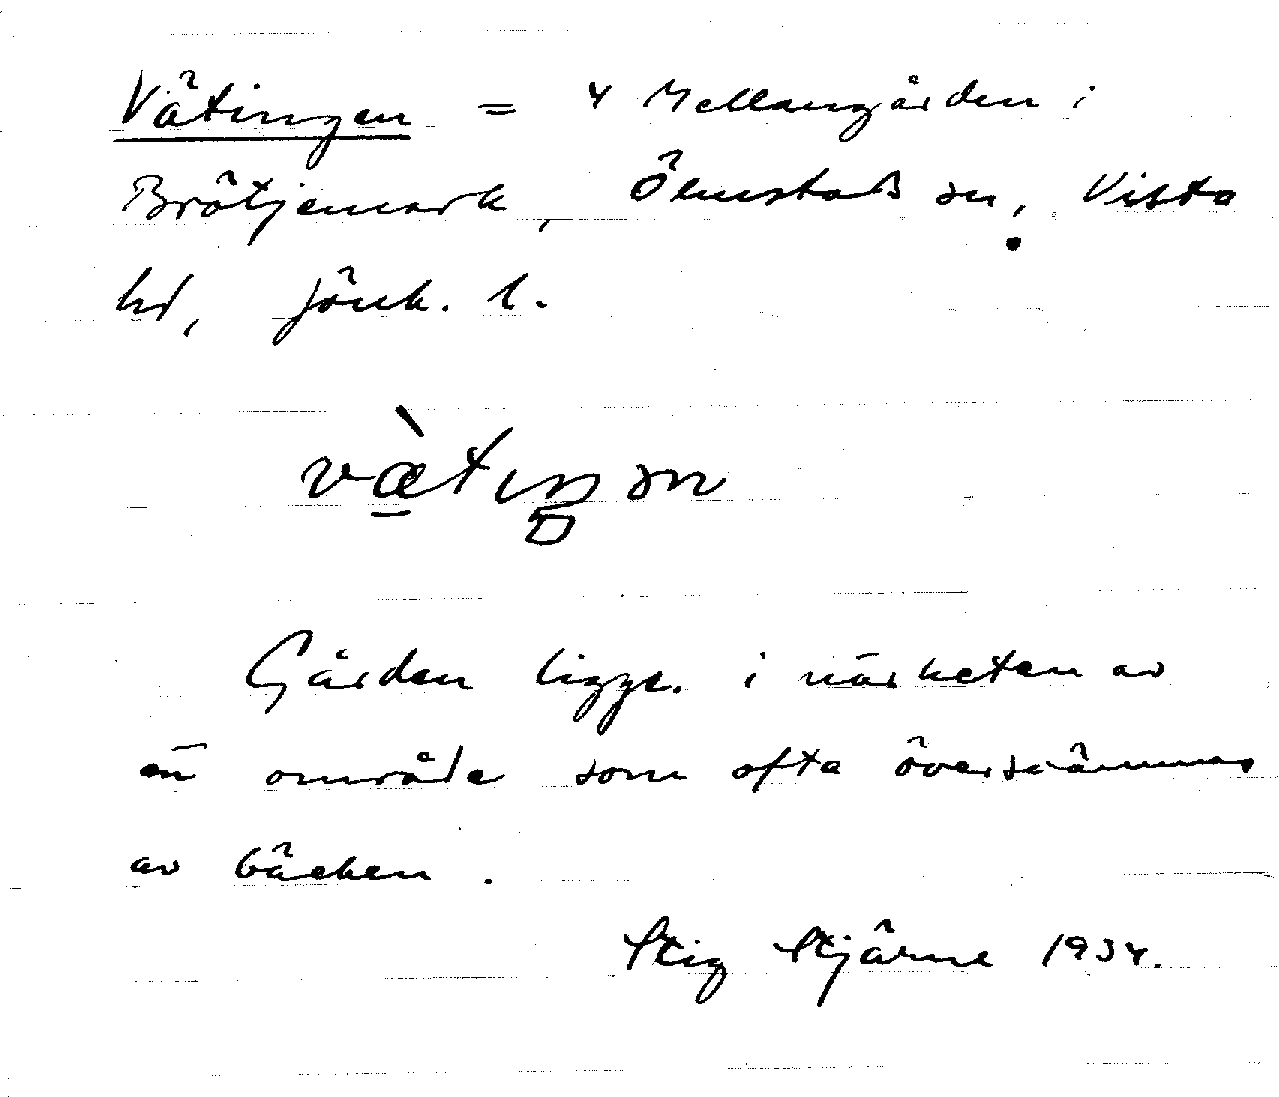 Vätingen = 4 Mellangården i
Brötjemark, Ölmstads sn, Vista
hd, Jönk. l.
vætıŋən
Gården ligger i närheten av
en område som ofta översvämmas
av bäcken.
Stig Stjärne 1934.